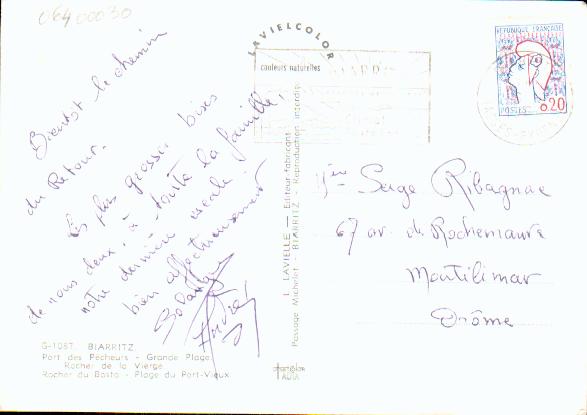 06400030
LAVIELCOLOR
couleurs naturelles
BIARRITZ
REPUBLIQUE FRANÇAISE
0,20
POSTES
Bientôt le chemin
du Retour.
Les plus grosses bises
de nous deux, à toute la famille,
notre dernière escale
bien affectueusement
Solange
André
Serge Ribagnac
67 av. de Rochemaure
Montélimar
Drôme
I. LAVIELLE — Editeur-fabricant
Passage Machicot - BIARRITZ - Reproduction interdite
G-1087. BIARRITZ
Port des Pêcheurs - Grande Plage
Rocher de la Vierge
Rocher du Basta - Plage du Port-Vieux